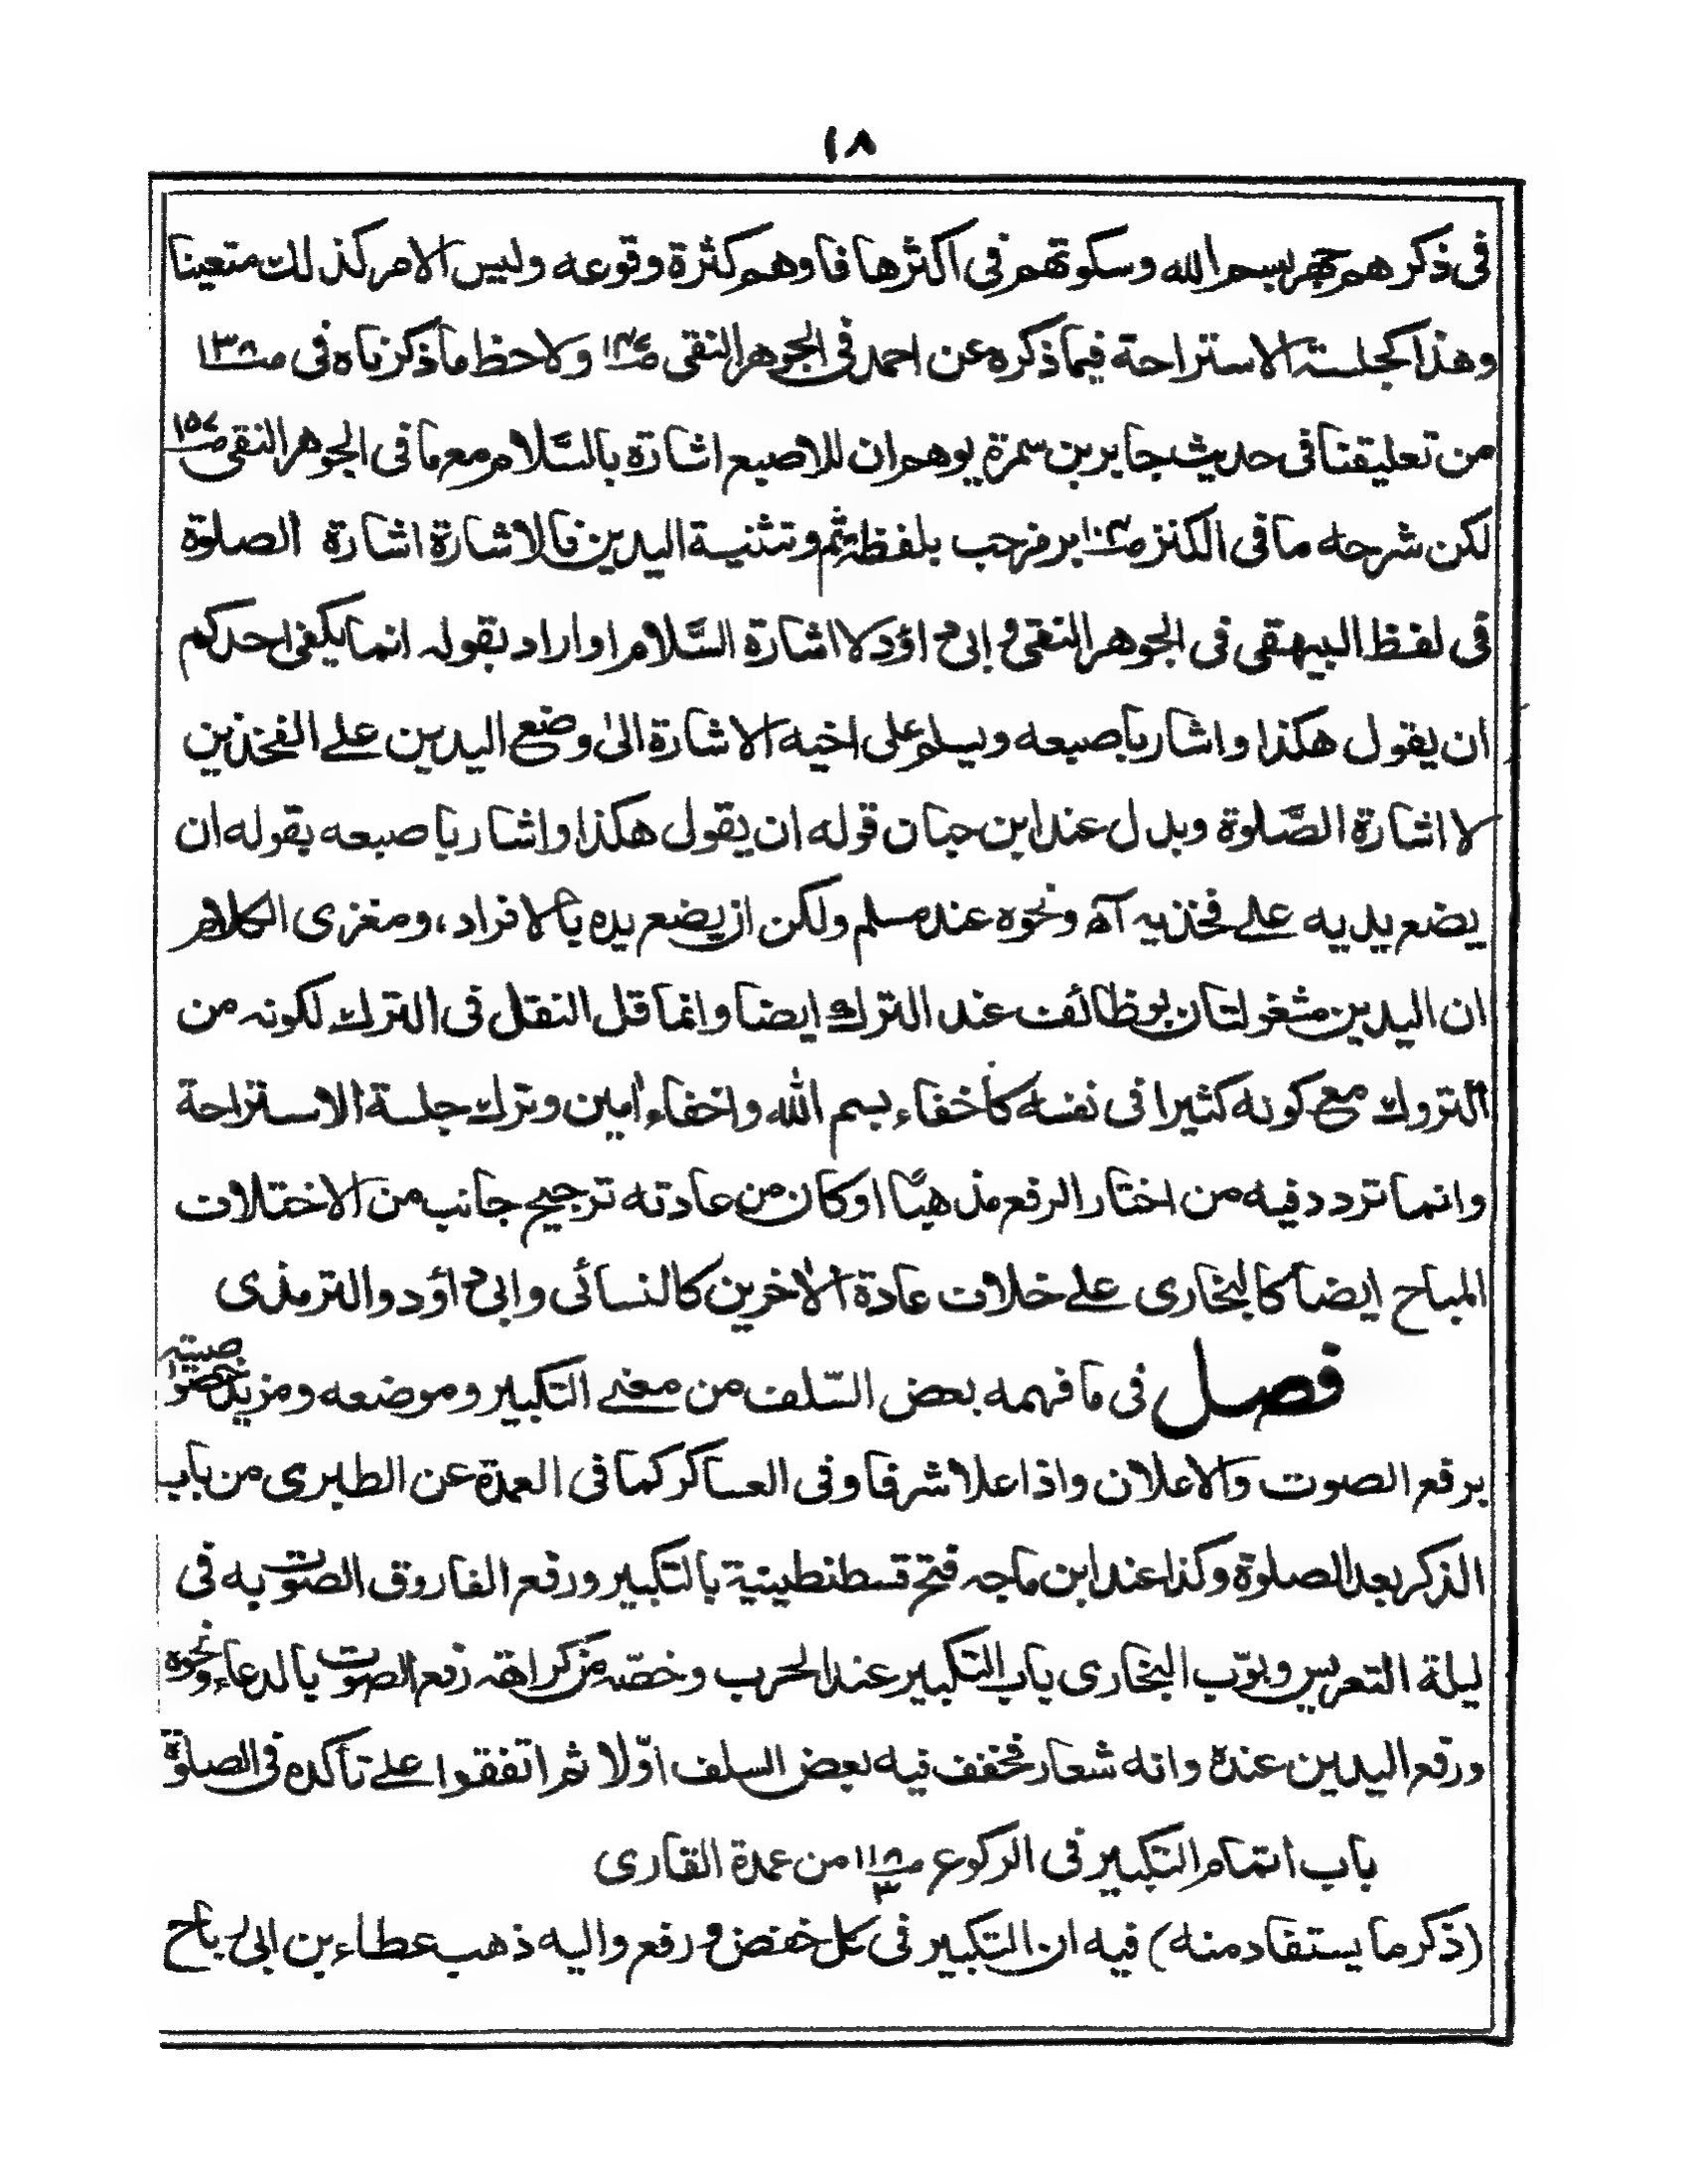 ١٨
فى ذكر هم جهر بسم الله وسكوتهم فى اكثرها فاوهم كثرة وقوعه وليس الامر كذلك متعينا
وهذا كجلسة الاستراحة فيما ذكره عن احمد فى الجوهر النقى ولاحظ ما ذكرناه فى صـ١٣٨
من تعليقنا فى حديث جابر بن سمرة يوهم ان للاصبع اشارة بالسَّلام مع ما فى الجوهر النقى صـ١٥٤
لكن شرحه ما فى الكنز برمز حب بلفظ ثم وتثنية اليدين فالاشارة اشارة الصلوة
فى لفظ البيهقى فى الجوهر النقى وابى داؤد لا اشارة السَّلام او اراد بقوله انما يكفى احدكم
ان يقول هكذا واشار باصبعه ويسلم على اخيه الاشارة الىٰ وضع اليدين علے الفخذين
لا اشارة الصَّلوة وبدل عند ابن حبان قوله ان يقول هكذا واشار باصبعه بقوله ان
يضع يديه علے فخذيه آه ونحوه عند مسلم ولكن ان يضع يده بالافراد، ومغزى الكلام
ان اليدين مشغولتان بوظائف عند الترك ايضا وانما قل النقل فى الترك لكونه من
التروك مع كونه كثيرا فى نفسه كاخفاء بسم الله واخفاء اٰمين وترك جلسة الاستراحة
وانما تردد فيه من اختار الرفع مذهبًا او كان من عادته ترجيح جانب من الاختلاف
المباح ايضا كالبخارى علے خلاف عادة الاٰخرين كالنسائى وابى داؤد والترمذى
فصل فى ما فهمه بعض السّلف من معنے التكبير وموضعه ومزيد خصوصيته
برفع الصوت والاعلان واذا علا شرفا وفى العساكر كما فى العمدة عن الطبرى من باب
الذكر بعد الصلوة وكذا عند ابن ماجه فتح قسطنطينية بالتكبير ورفع الفاروق الصوت به فى
ليلة التعريس وبوّب البخارى باب التكبير عند الحرب وخصّه من كراهة رفع الصوت بالدعاء ونحوه
ورفع اليدين عندة وانه شعار فخفف فيه بعض السلف اوّلا ثم اتفقوا علے تأكده فى الصلوة
باب اتمام التكبير فى الركوع صـ١١٨ ٣ من عمدة القارى
(ذكر ما يستفاد منه) فيه ان التكبير فى كل خفض ورفع واليه ذهب عطاء بن ابى رباح